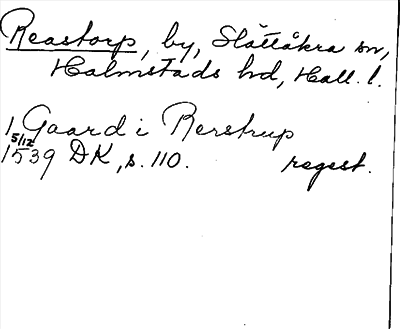 Reastorp, by, Slättåkra sn,
Halmstads hd, Hall. l.
1 Gaard i Rerstrup
5/12
1539 DK, s. 110. regest.